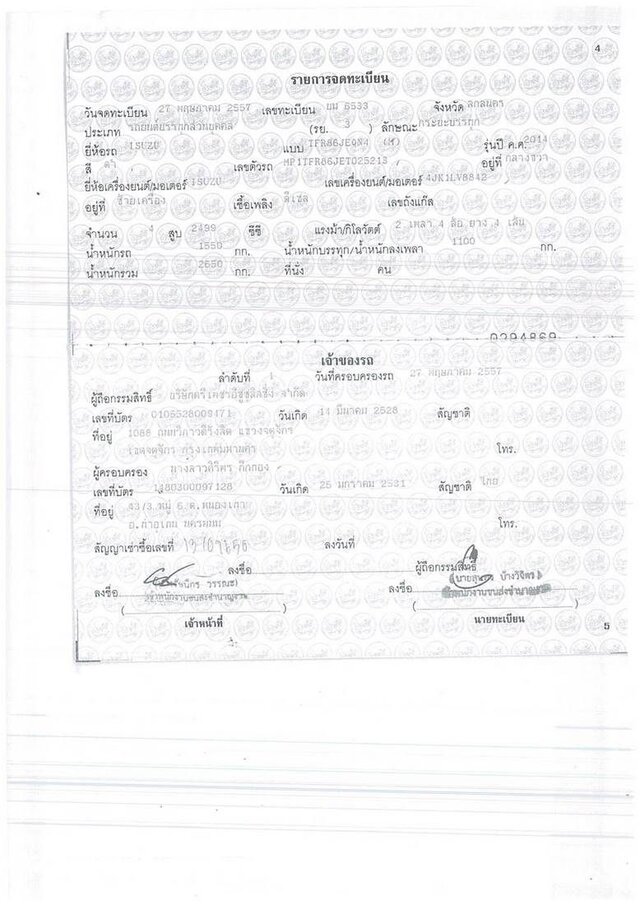 4
รายการจดทะเบียน
วันจดทะเบียน 27 พฤษภาคม 2557 เลขทะเบียน 6533 จังหวัด สกลนคร
ประเภท รถยนต์บรรทุกส่วนบุคคล (รย. 3 ) ลักษณะ กระบะบรรทุก
ยี่ห้อรถ ISUZU แบบ (M) รุ่นปี ค.ศ. 2014
สี เลขตัวรถ MP1TFR86JET025213 อยู่ที่ กลางขวา
ยี่ห้อเครื่องยนต์/มอเตอร์ ISUZU เลขเครื่องยนต์/มอเตอร์ 4JK1LV8842
อยู่ที่ ซ้ายเครื่อง เชื้อเพลิง ดีเซล เลขถังแก๊ส
จำนวน 4 สูบ 2499 ซีซี แรงม้า/กิโลวัตต์ 2 เพลา 4 ล้อ ยาง 4 เส้น
น้ำหนักรถ 1550 กก. น้ำหนักบรรทุก/น้ำหนักลงเพลา 1100 กก.
น้ำหนักรวม 2650 กก. ที่นั่ง คน
เจ้าของรถ
ลำดับที่ 1 วันที่ครอบครองรถ 27 พฤษภาคม 2557
ผู้ถือกรรมสิทธิ์ บริษัทตรีเพชรอีซูซุลิสซิ่ง จำกัด
เลขที่บัตร 0105528009471 วันเกิด 14 มีนาคม 2528 สัญชาติ
ที่อยู่ 1088 ถนนวิภาวดีรังสิต แขวงจตุจักร
เขตจตุจักร กรุงเทพมหานคร โทร.
ผู้ครอบครอง
เลขที่บัตร 1480300097128 วันเกิด 25 มกราคม 2531 สัญชาติ ไทย
ที่อยู่ 43/3 หมู่ 6
อ.ท่าอุเทน นครพนม โทร.
สัญญาเช่าซื้อเลขที่ ลงวันที่
ลงชื่อ ผู้ถือกรรมสิทธิ์
ลงชื่อ ลงชื่อ
เจ้าหน้าที่ นายทะเบียน
5